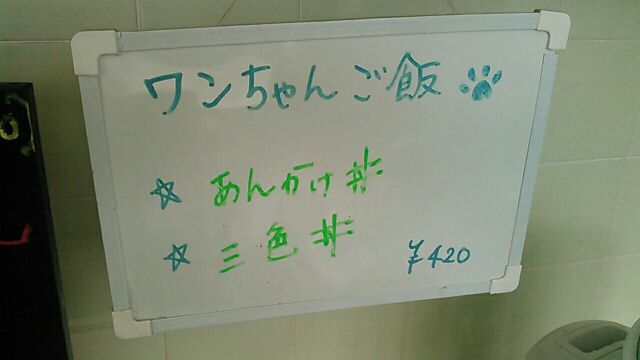 ワンちゃんご飯
☆ あんかけ丼
☆ 三色丼 ¥420